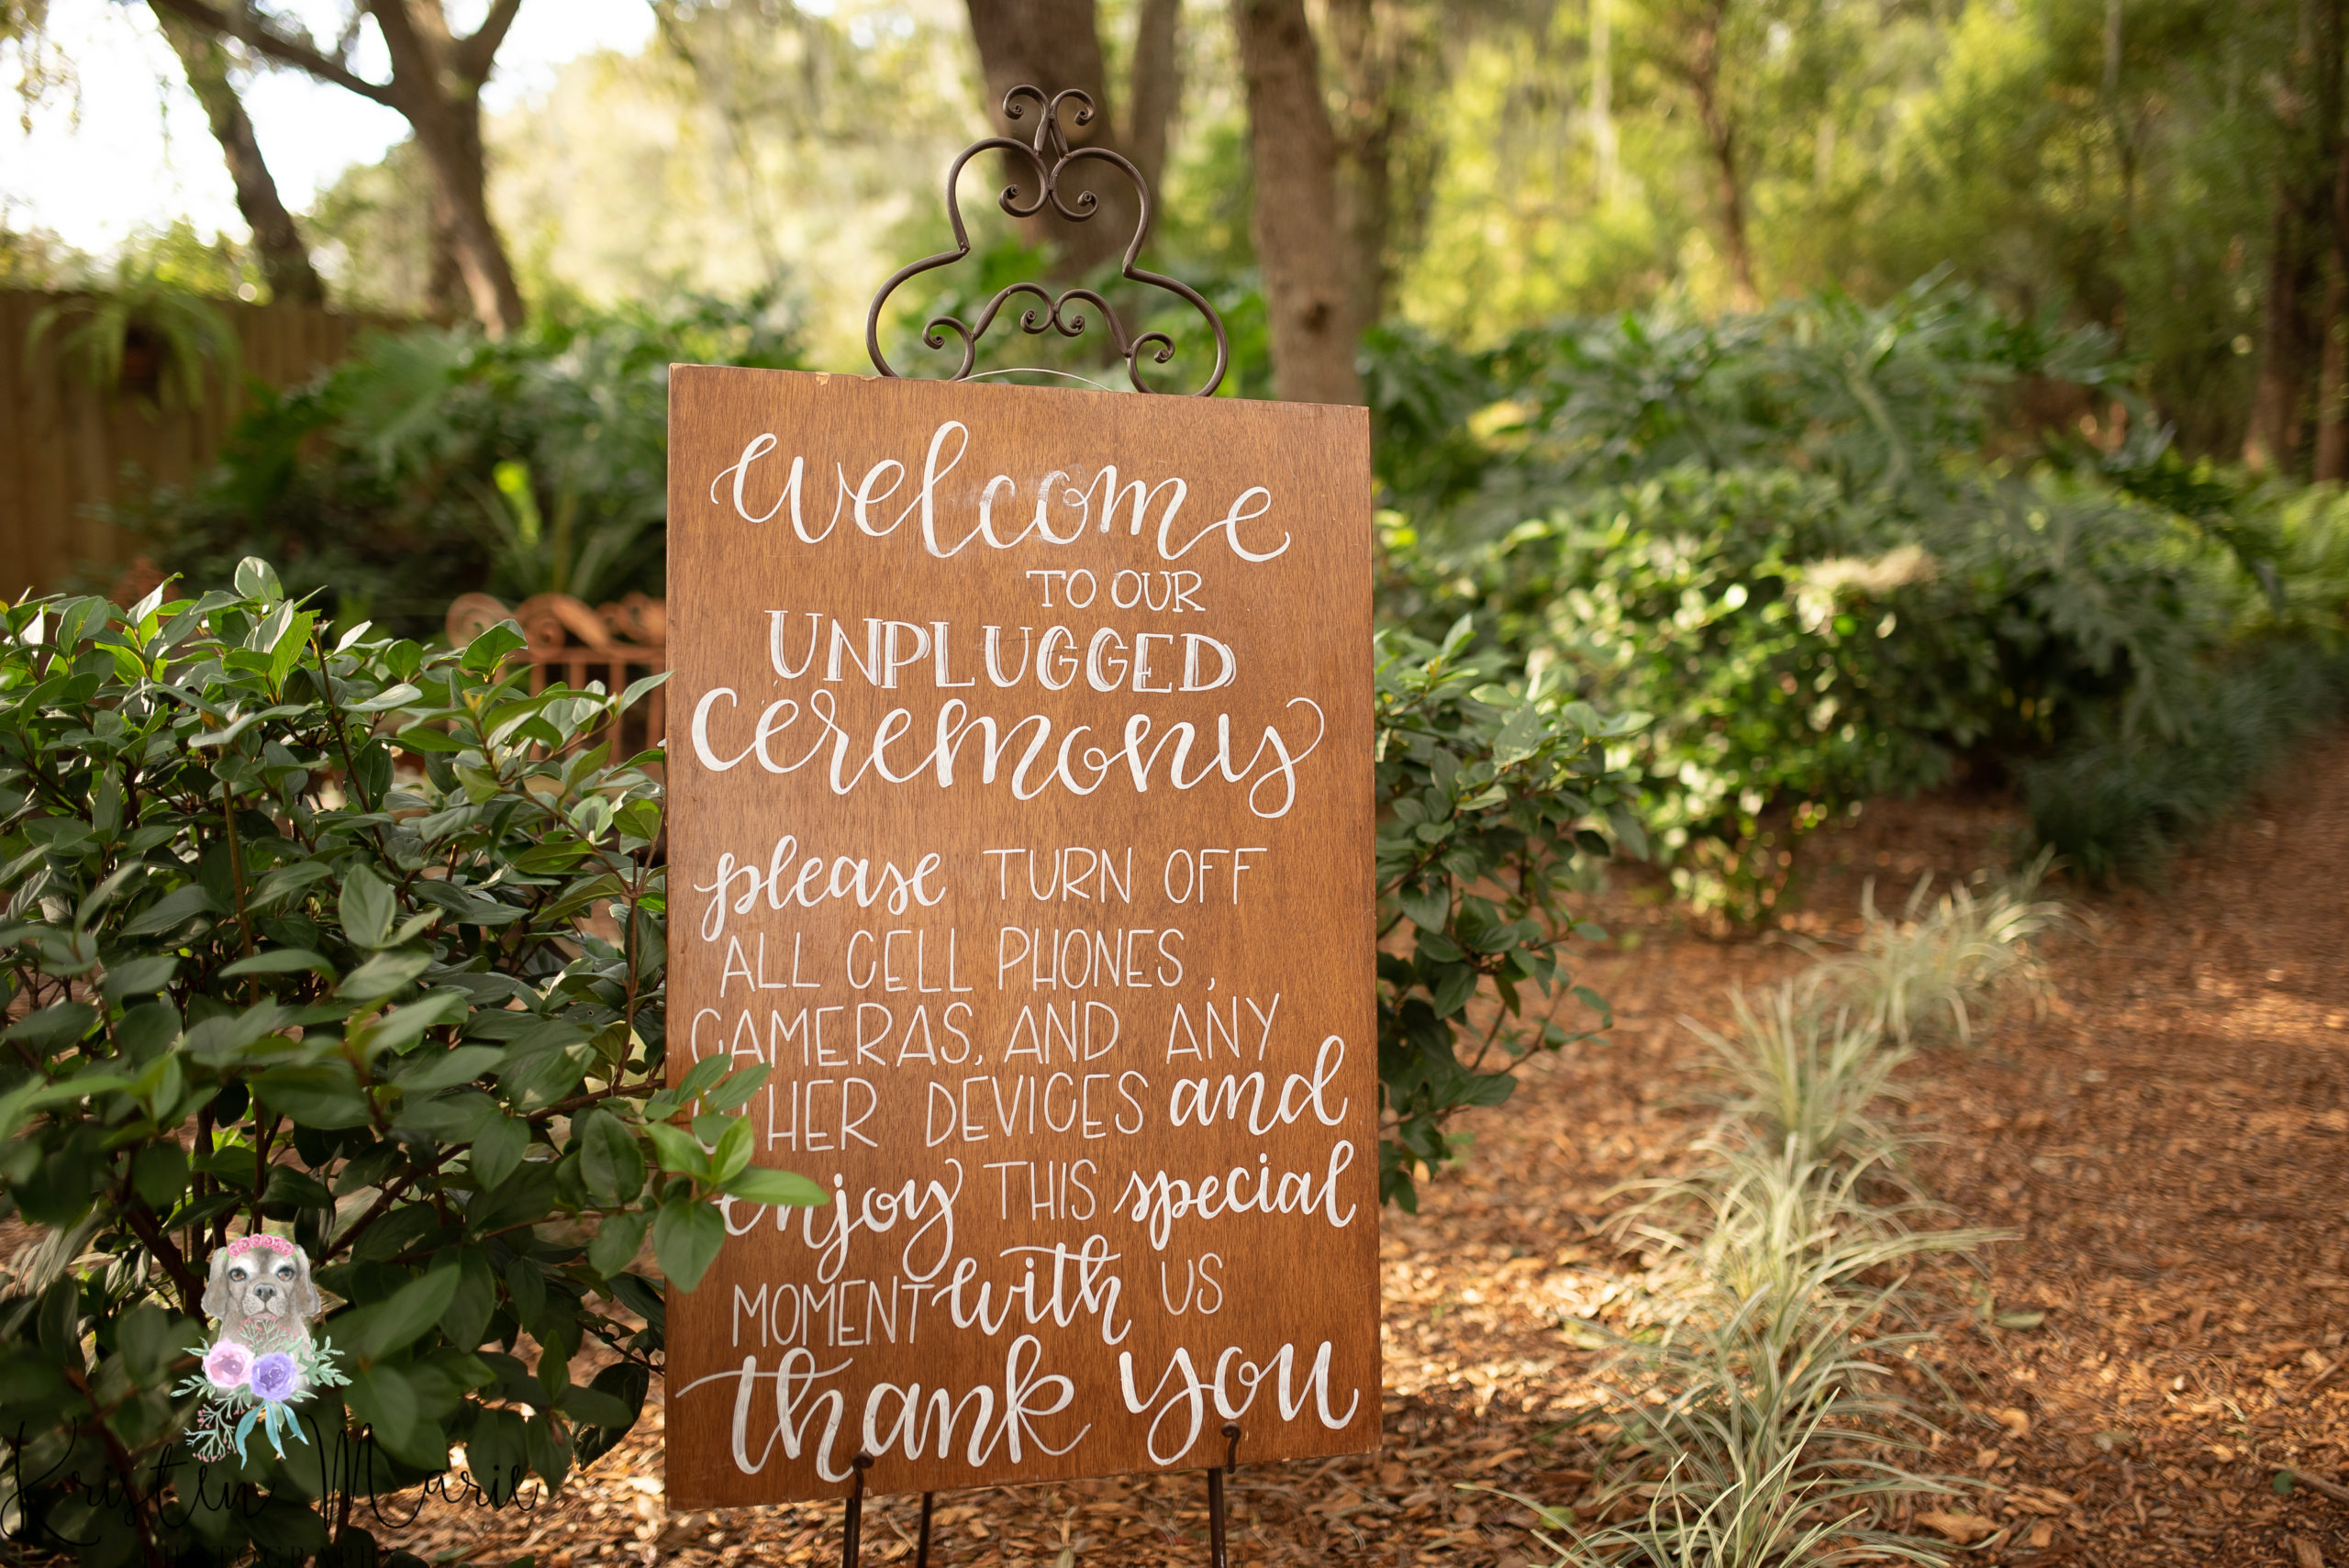 welcome
TO OUR
UNPLUGGED
ceremony
please TURN OFF
ALL CELL PHONES,
CAMERAS, AND ANY
HER DEVICES and
enjoy THIS special
MOMENT with US
thank you
Kristen Marie
PHOTOGRAPHY